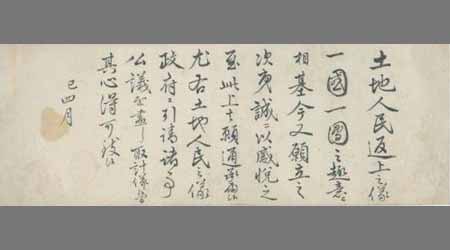 土地人民返上之儀
一國一圓之趣意
相基今又願立之
次第誠ニ以感悦之
至此上願通承
尤右土地人民之儀
政府ニ引請諸事
公議を盡し取計
其心得可
巳四月